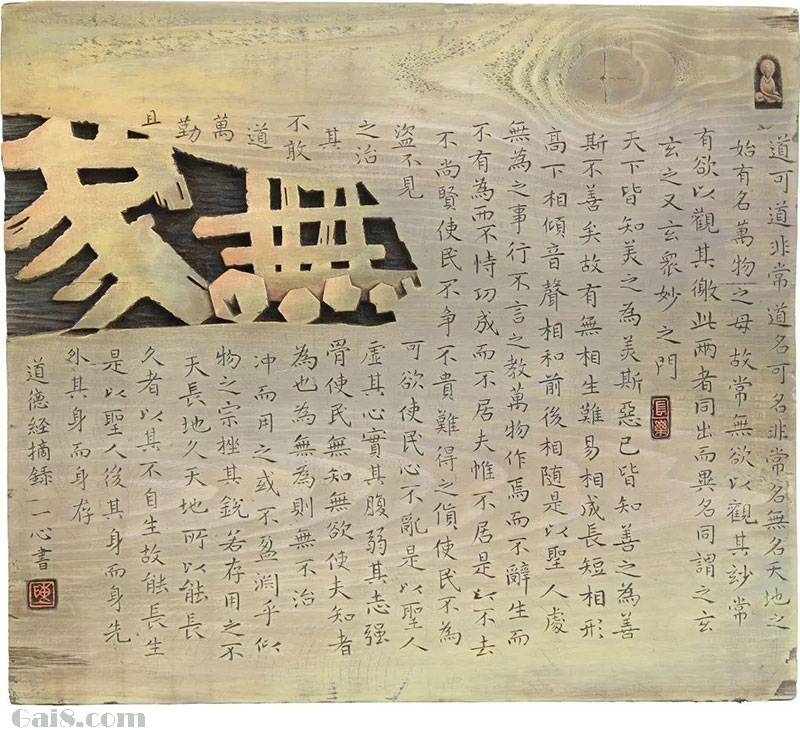 道可道非常道名可名非常名無名天地之
始有名萬物之母故常無欲以觀其玅常
有欲以觀其徼此两者同出而異名同謂之玄
玄之又玄衆妙之門
天下皆知美之為美斯惡已皆知善之為善
斯不善矣故有無相生難易相成長短相形
高下相傾音聲相和前後相随是以聖人處
無為之事行不言之教萬物作焉而不辭生而
不有為而不恃功成而不居夫惟不居是以不去
不尚賢使民不争不貴難得之貨使民不為
盜不見可欲使民心不亂是以聖人
之治虛其心實其腹弱其志强
其骨使民無知無欲使夫知者
不敢為也為無為則無不治
道冲而用之或不盈淵乎似
萬物之宗挫其銳若存用之不
勤天長地久天地所以能長
且久者以其不自生故能長生
是以聖人後其身而身先
外其身而身存
道德經摘録 一心書
無
Gai8.com